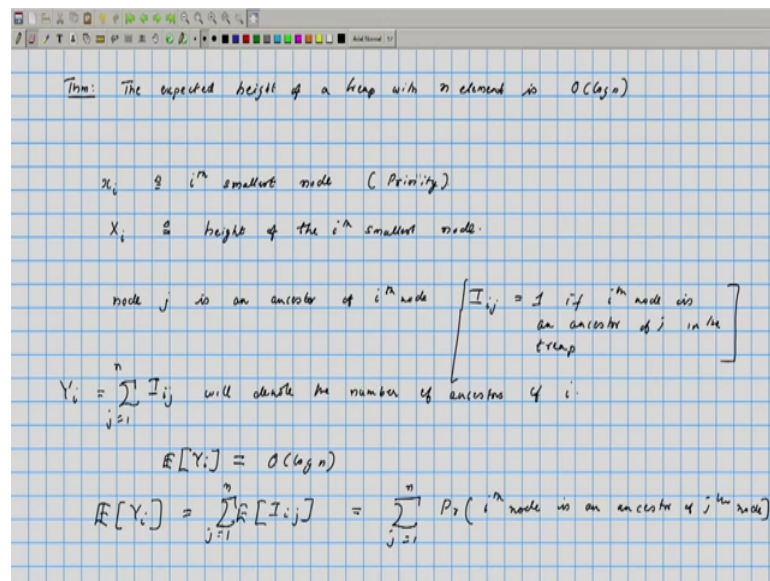 Thm: The expected height of a treap with n element is O(log n)
x_i ≜ i^th smallest node (Priority)
X_i ≜ height of the i^th smallest node.
node j is an ancestor of i^th node [ I_ij = 1 if i^th node is
an ancestor of j in the
treap ]
Y_i = ∑_{j=1}^{n} I_ij will denote the number of ancestors of i.
E[Y_i] = O(log n)
E[Y_i] = ∑_{j=1}^{n} E[I_ij] = ∑_{j=1}^{n} Pr( i^th node is an ancestor of j^th node)